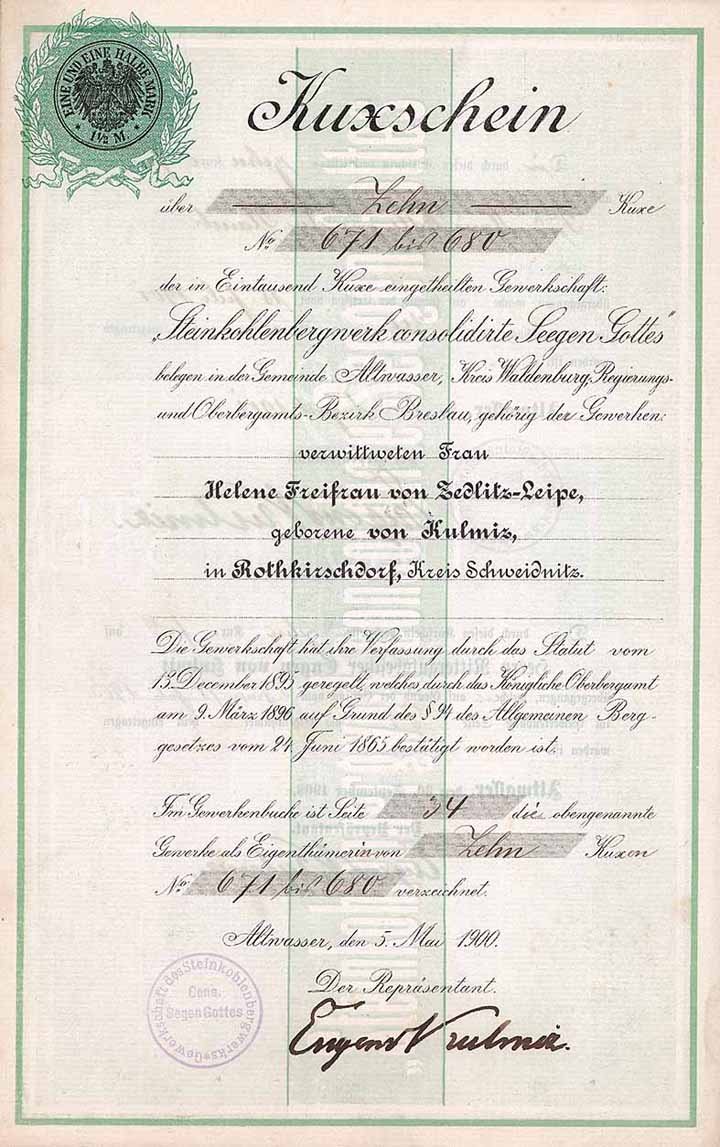 EINE UND EINE HALBE MARK
1½ M.
Kuxschein
über Zehn Kuxe
No 671 bis 680
der in Eintausend Kuxe eingetheilten Gewerkschaft:
„Steinkohlenbergwerk consolidirte Seegen Gottes"
belegen in der Gemeinde Altwasser, Kreis Waldenburg, Regierungs-
und Oberbergamts-Bezirk Breslau, gehörig der Gewerken:
verwittweten Frau
Helene Freifrau von Zedlitz-Leipe,
geborene von Kulmiz,
in Rothkirschdorf, Kreis Schweidnitz.
Die Gewerkschaft hat ihre Verfassung durch das Statut vom
13. December 1895 geregelt, welches durch das Königliche Oberbergamt
am 9. März 1896 auf Grund des § 94 des Allgemeinen Berg-
gesetzes vom 24. Juni 1865 bestätigt worden ist.
Im Gewerkenbuche ist Seite 34 die obengenannte
Gewerke als Eigenthümerin von Zehn Kuxen
No 671 bis 680 verzeichnet.
Altwasser, den 5. Mai 1900.
Der Repräsentant.
Eugen v Kulmiz.
Gewerkschaft des Steinkohlenbergwerks
Cons.
Segen Gottes